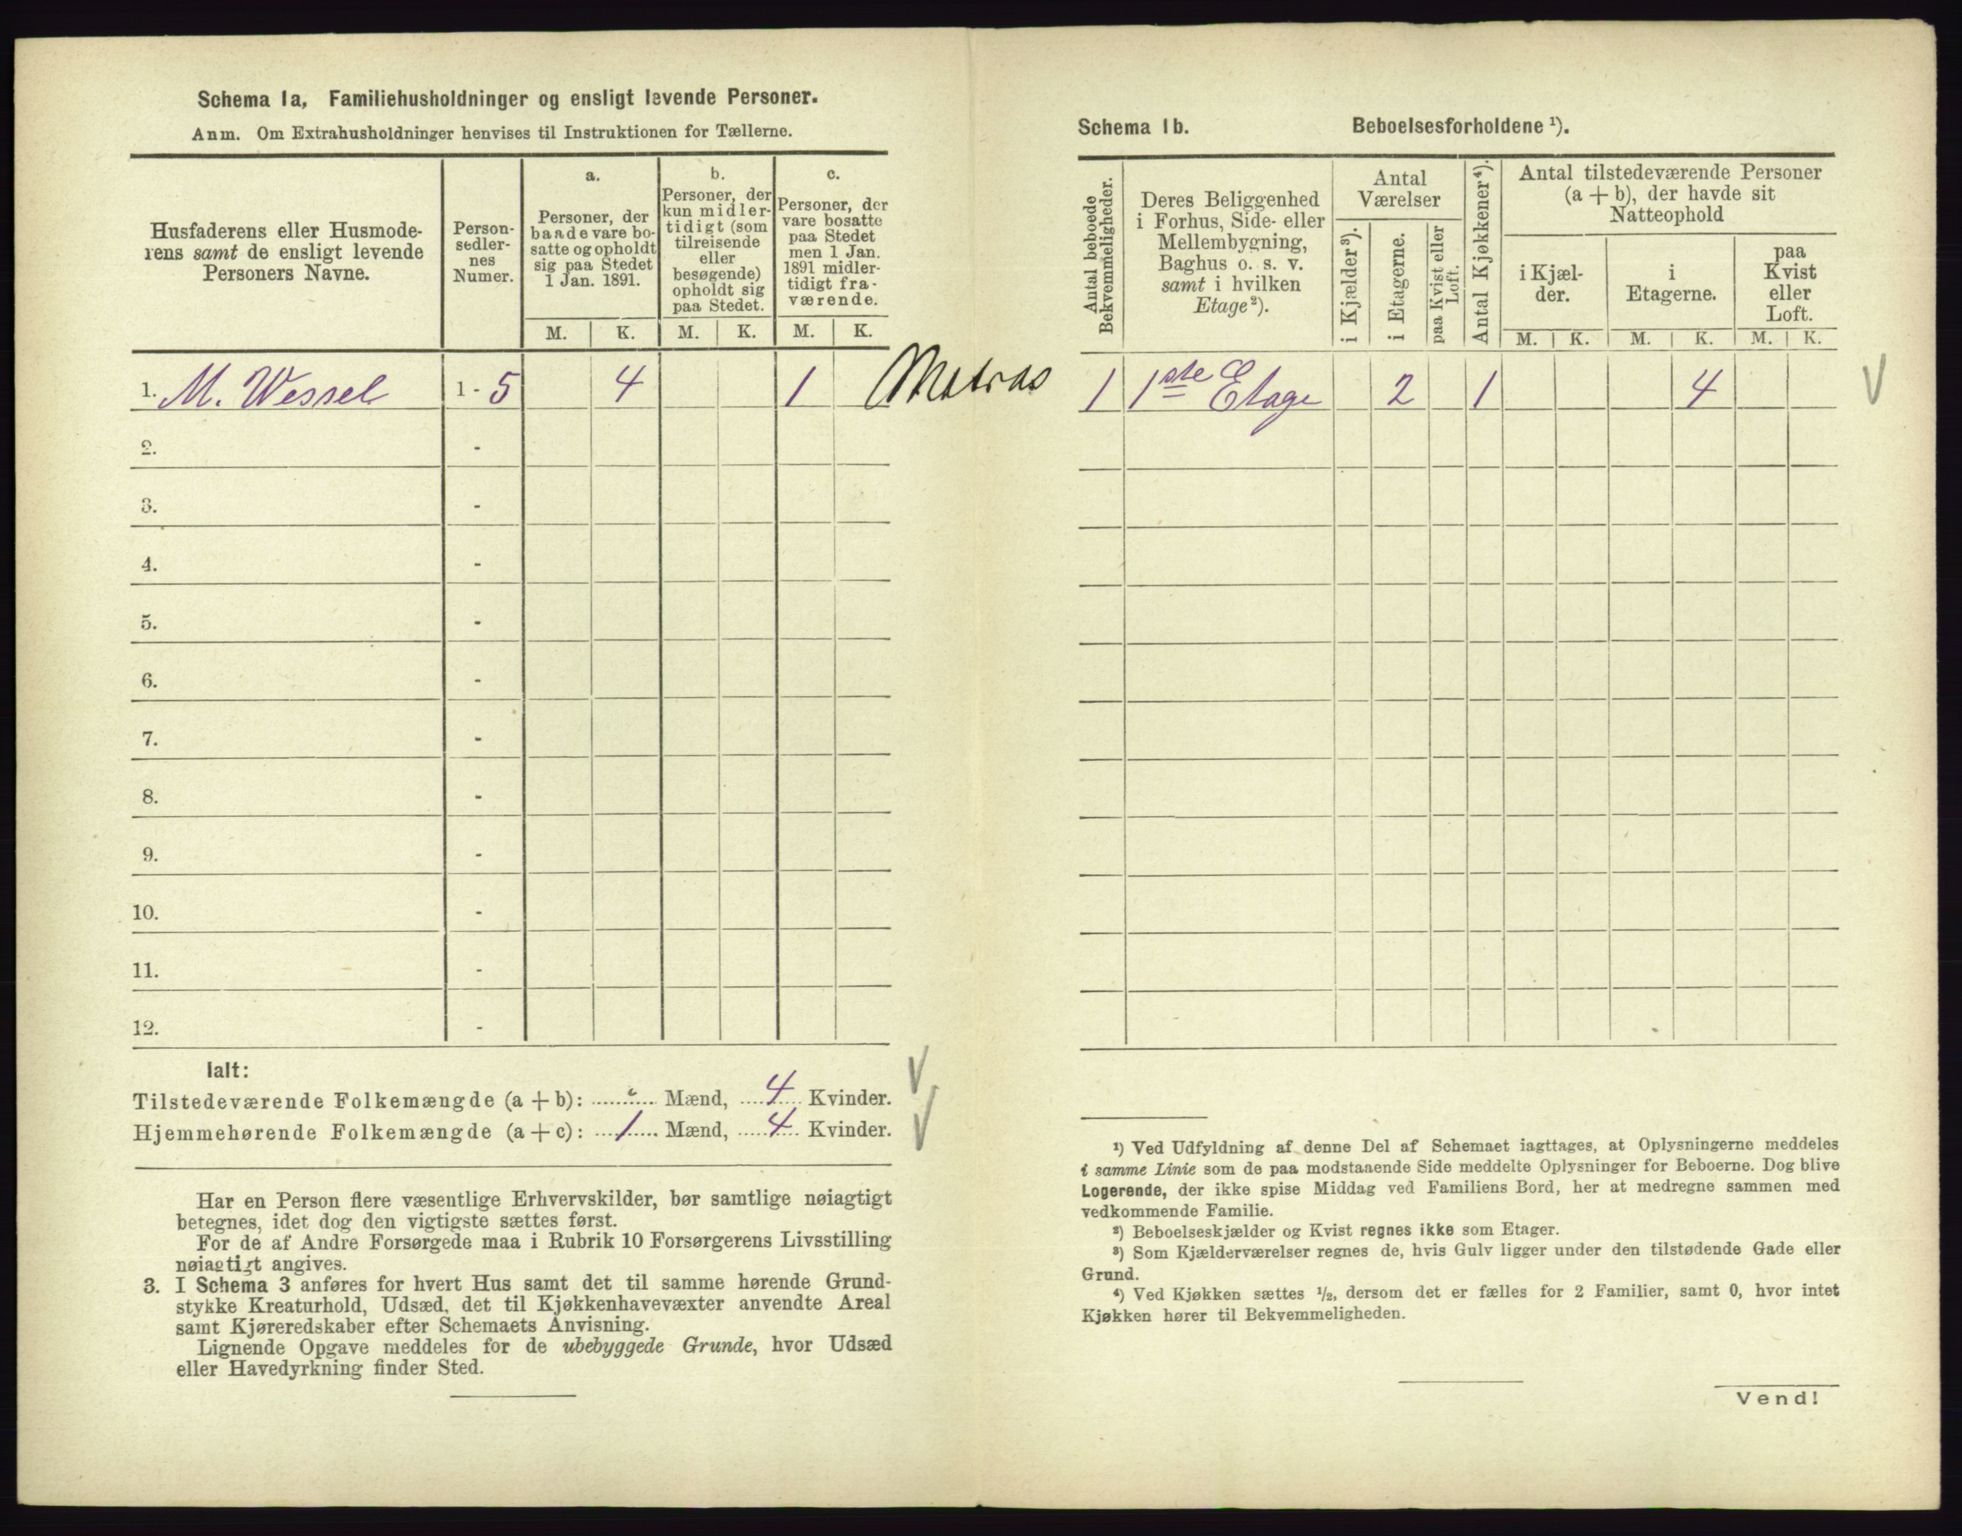 Schema 1a, Familiehusholdninger og ensligt levende Personer.
Anm. Om Extrahusholdninger henvises til Instruktionen for Tællerne.
Husfaderens eller Husmoderens samt de ensligt levende Personers Navne.
Personsedlernes Numer.
a.
Personer, der baade vare bosatte og opholdt sig paa Stedet 1 Jan. 1891.
b.
Personer, der kun midlertidigt (som tilreisende eller besøgende) opholdt sig paa Stedet.
c.
Personer, der vare bosatte paa Stedet men 1 Jan. 1891 midlertidigt fraværende.
M. K. M. K. M. K.
1. M. Wessel 1 - 5 4 1 Matras
2. -
3. -
4. -
5. -
6. -
7. -
8. -
9. -
10. -
11. -
12. -
Ialt:
Tilstedeværende Folkemængde (a + b): Mænd, 4 Kvinder.
Hjemmehørende Folkemængde (a + c): 1 Mænd, 4 Kvinder.
Har en Person flere væsentlige Erhvervskilder, bør samtlige nøiagtigt
betegnes, idet dog den vigtigste sættes først.
For de af Andre Forsørgede maa i Rubrik 10 Forsørgerens Livsstilling
nøiagtigt angives.
3. I Schema 3 anføres for hvert Hus samt det til samme hørende Grund-
stykke Kreaturhold, Udsæd, det til Kjøkkenhavevæxter anvendte Areal
samt Kjøreredskaber efter Schemaets Anvisning.
Lignende Opgave meddeles for de ubebyggede Grunde, hvor Udsæd
eller Havedyrkning finder Sted.
Schema 1b. Beboelsesforholdene ¹).
Antal beboede Bekvemmeligheder.
Deres Beliggenhed i Forhus, Side- eller Mellembygning, Baghus o. s. v. samt i hvilken Etage ²).
Antal Værelser
i Kjælder ³).
i Etagerne.
paa Kvist eller Loft.
Antal Kjøkkener ⁴).
Antal tilstedeværende Personer (a + b), der havde sit Natteophold
i Kjælder.
i Etagerne.
paa Kvist eller Loft.
M. K. M. K. M. K.
1 1ste Etage 2 1 4
¹) Ved Udfyldning af denne Del af Schemaet iagttages, at Oplysningerne meddeles
i samme Linie som de paa modstaaende Side meddelte Oplysninger for Beboerne. Dog blive
Logerende, der ikke spise Middag ved Familiens Bord, her at medregne sammen med
vedkommende Familie.
²) Beboelseskjælder og Kvist regnes ikke som Etager.
³) Som Kjælderværelser regnes de, hvis Gulv ligger under den tilstødende Gade eller
Grund.
⁴) Ved Kjøkken sættes ½, dersom det er fælles for 2 Familier, samt 0, hvor intet
Kjøkken hører til Bekvemmeligheden.
Vend!